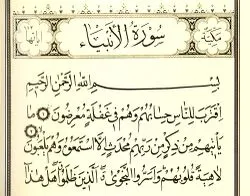 مكية سورة الأنبياء آياتها
بِسْمِ اللَّهِ الرَّحْمَٰنِ الرَّحِيمِ
اقْتَرَبَ لِلنَّاسِ حِسَابُهُمْ وَهُمْ فِي غَفْلَةٍ مُعْرِضُونَ مَا
يَأْتِيهِمْ مِنْ ذِكْرٍ مِنْ رَبِّهِمْ مُحْدَثٍ إِلَّا اسْتَمَعُوهُ وَهُمْ يَلْعَبُونَ
لَاهِيَةً قُلُوبُهُمْ وَأَسَرُّوا النَّجْوَى الَّذِينَ ظَلَمُوا هَلْ هَذَا